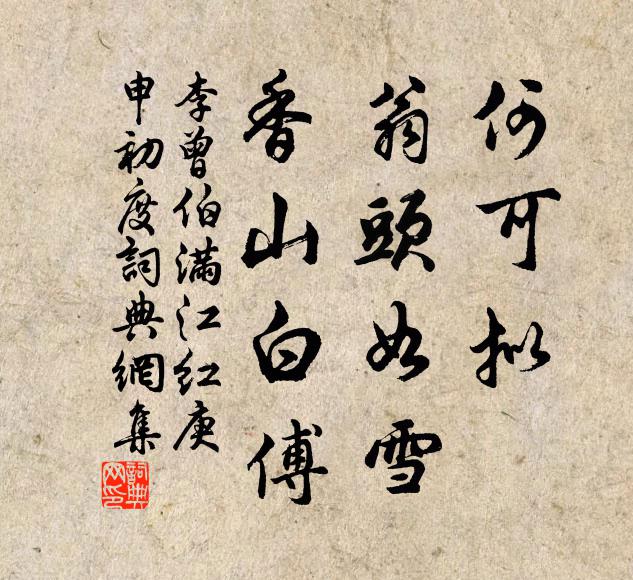 何可拟
翁頭如雪
香山白傅
李曾伯满江红庚
申初度詞典網集
詞典
网印